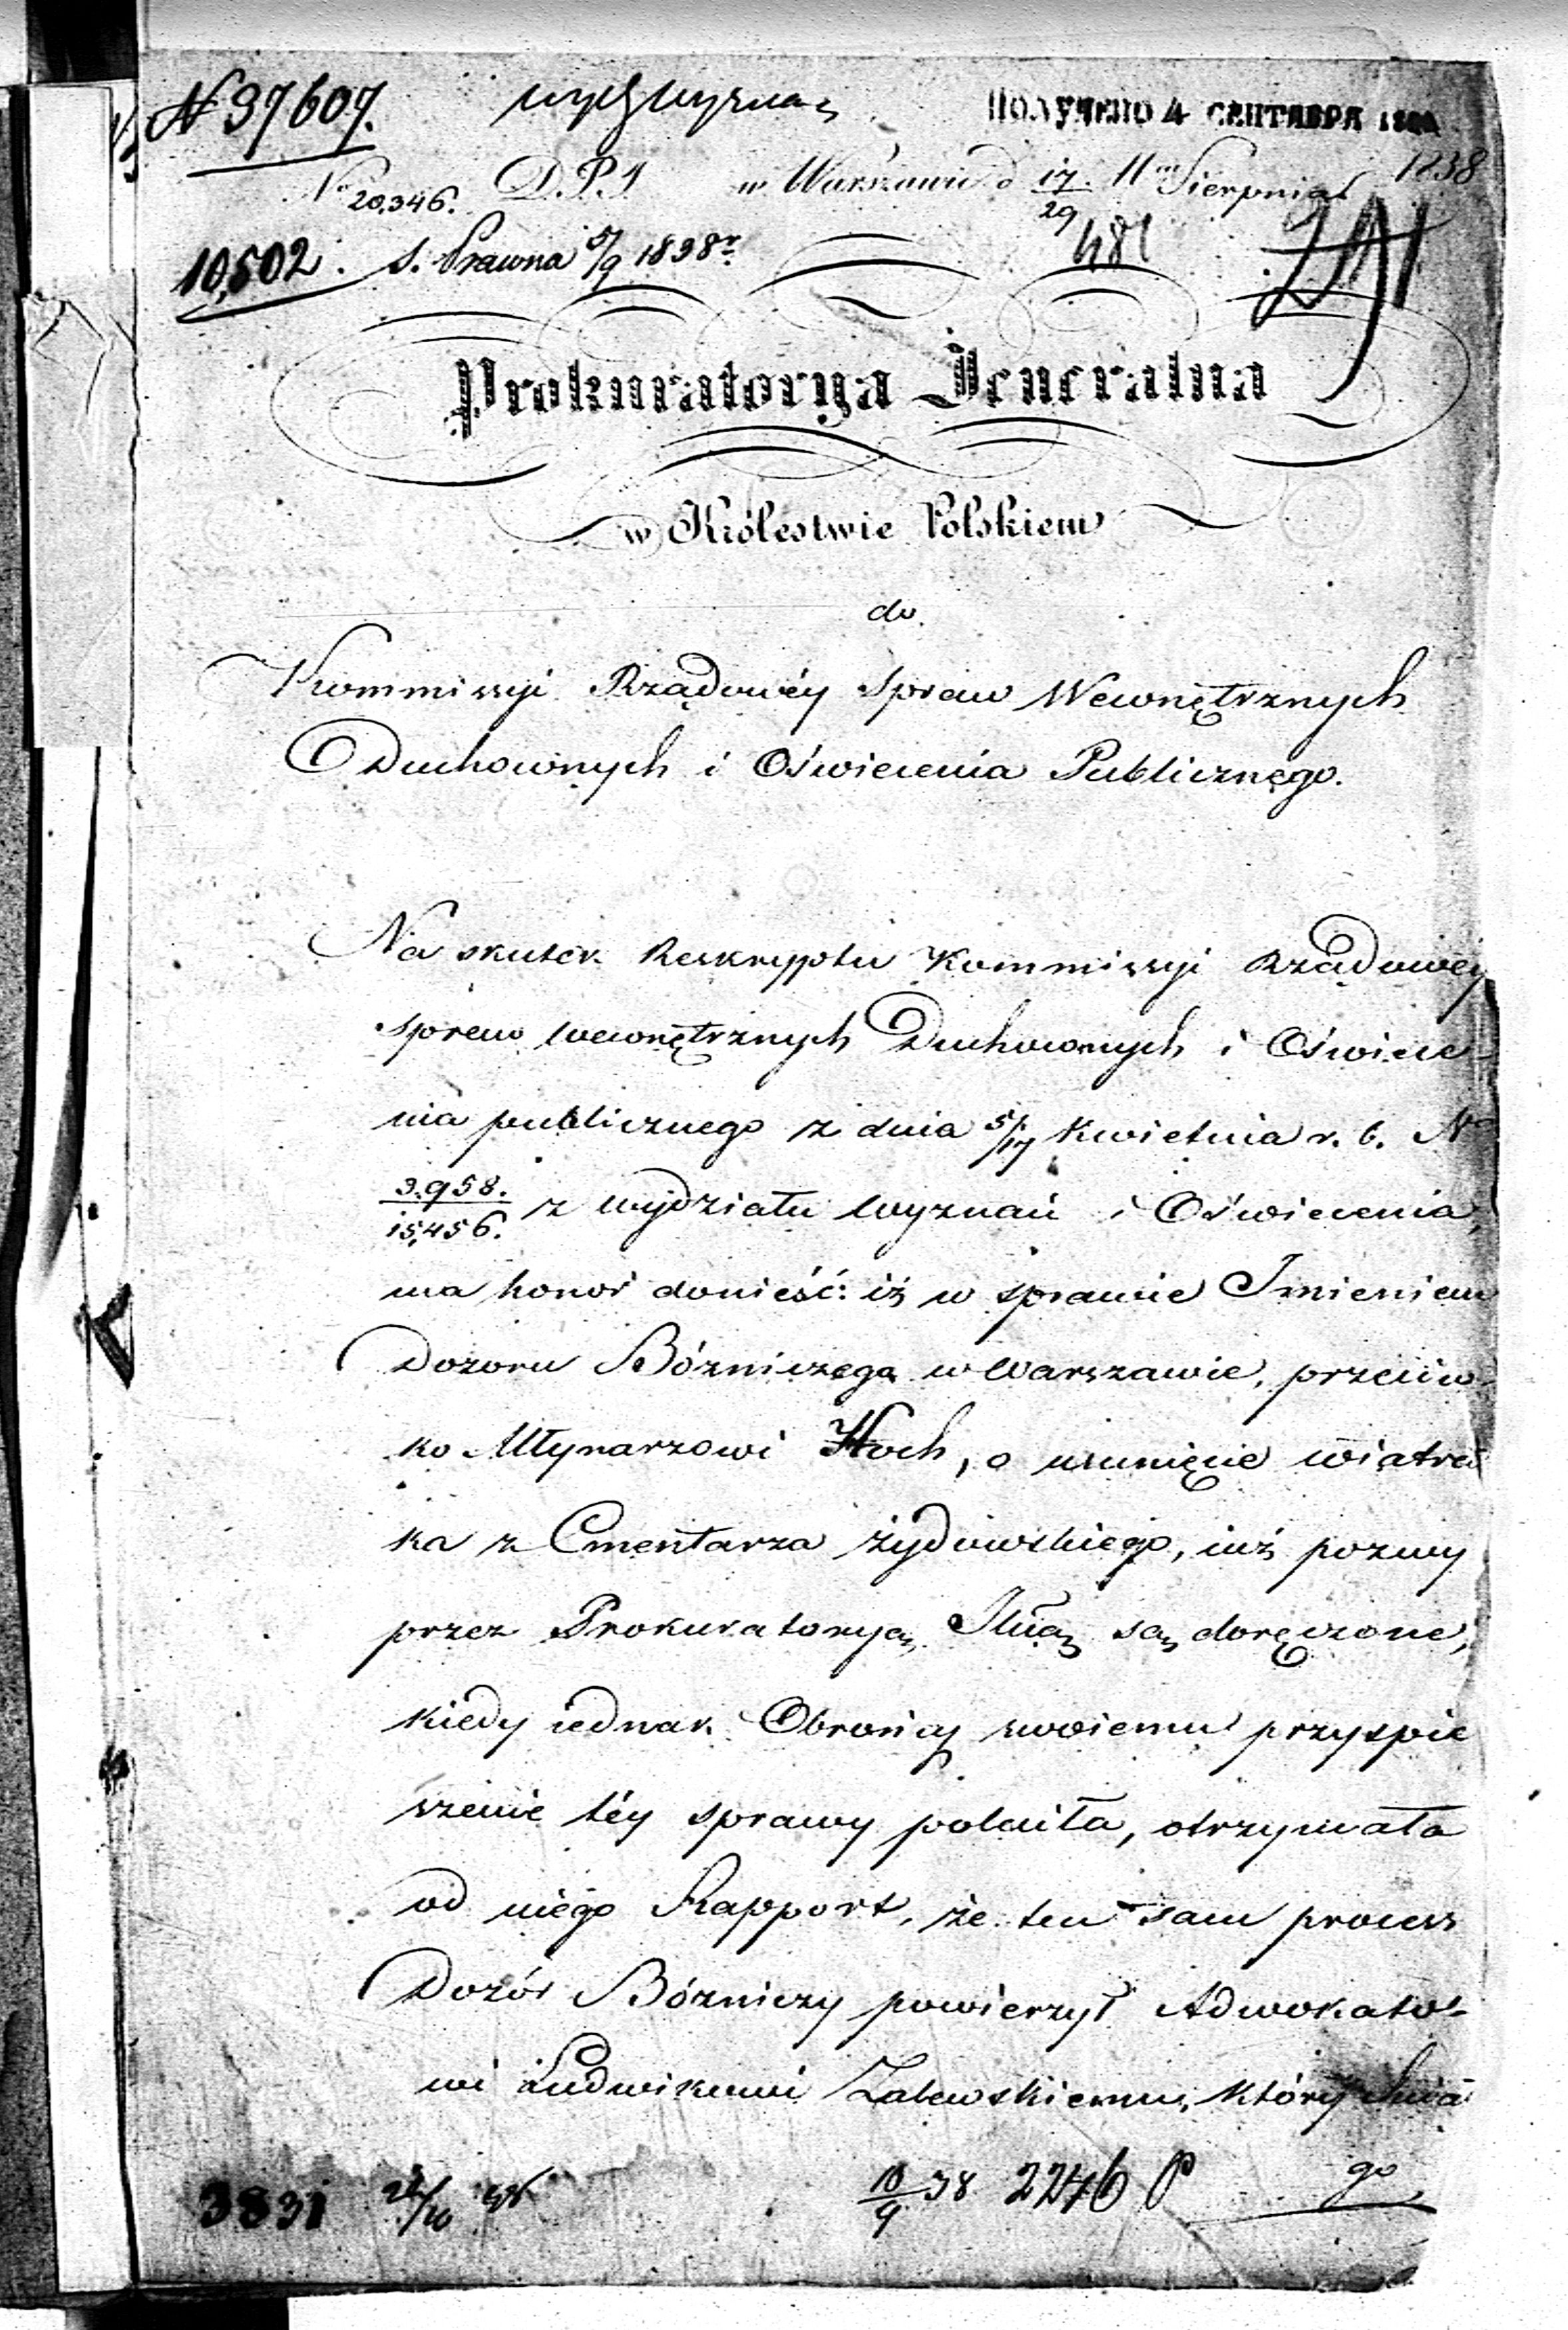 N 37607. wyd. wyznań
ПОЛУЧЕНО 4 СЕНТЯБРЯ
No 20,346. D.P.J w Warszawie d 17/29 Sierpnia 1838
10,502. s. Prawna 5/9 1838r.
481
Prokuratorya Jeneralna
w Królestwie Polskiem
do
Kommissyi Rządowéy Spraw Wewnętrznych
Duchownych i Oświecenia Publicznego.
Na skutek Reskryptu Kommissyi Rządowéy
Spraw wewnętrznych Duchownych i Oświece-
nia publicznego z dnia 5/17 Kwietnia r. b. No
3.958./15,456. z wydziału wyznań i Oświecenia,
ma honor donieść: iż w sprawie Imieniem
Dozoru Bózniczego w Warszawie, przeciw-
ko Młynarzowi Koch, o usunięcie wiatra
ka z Cmentarza żydowskiego, iuż pozwy
przez Prokuratoryą Jlną są doręczone,
kiedy iednak Obrońcy swoiemu przyspie
szenie téy sprawy poleciła, otrzymała
od niego Rapport, że ten sam process
Dozór Bózniczy powierzył Adwokato-
wi Ludwikowi Zalewskiemu, który
go
3831 10/9 38 2246 P